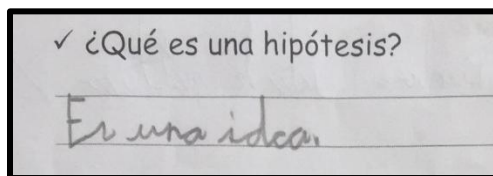 ✓ ¿Qué es una hipótesis?
Es una idea.